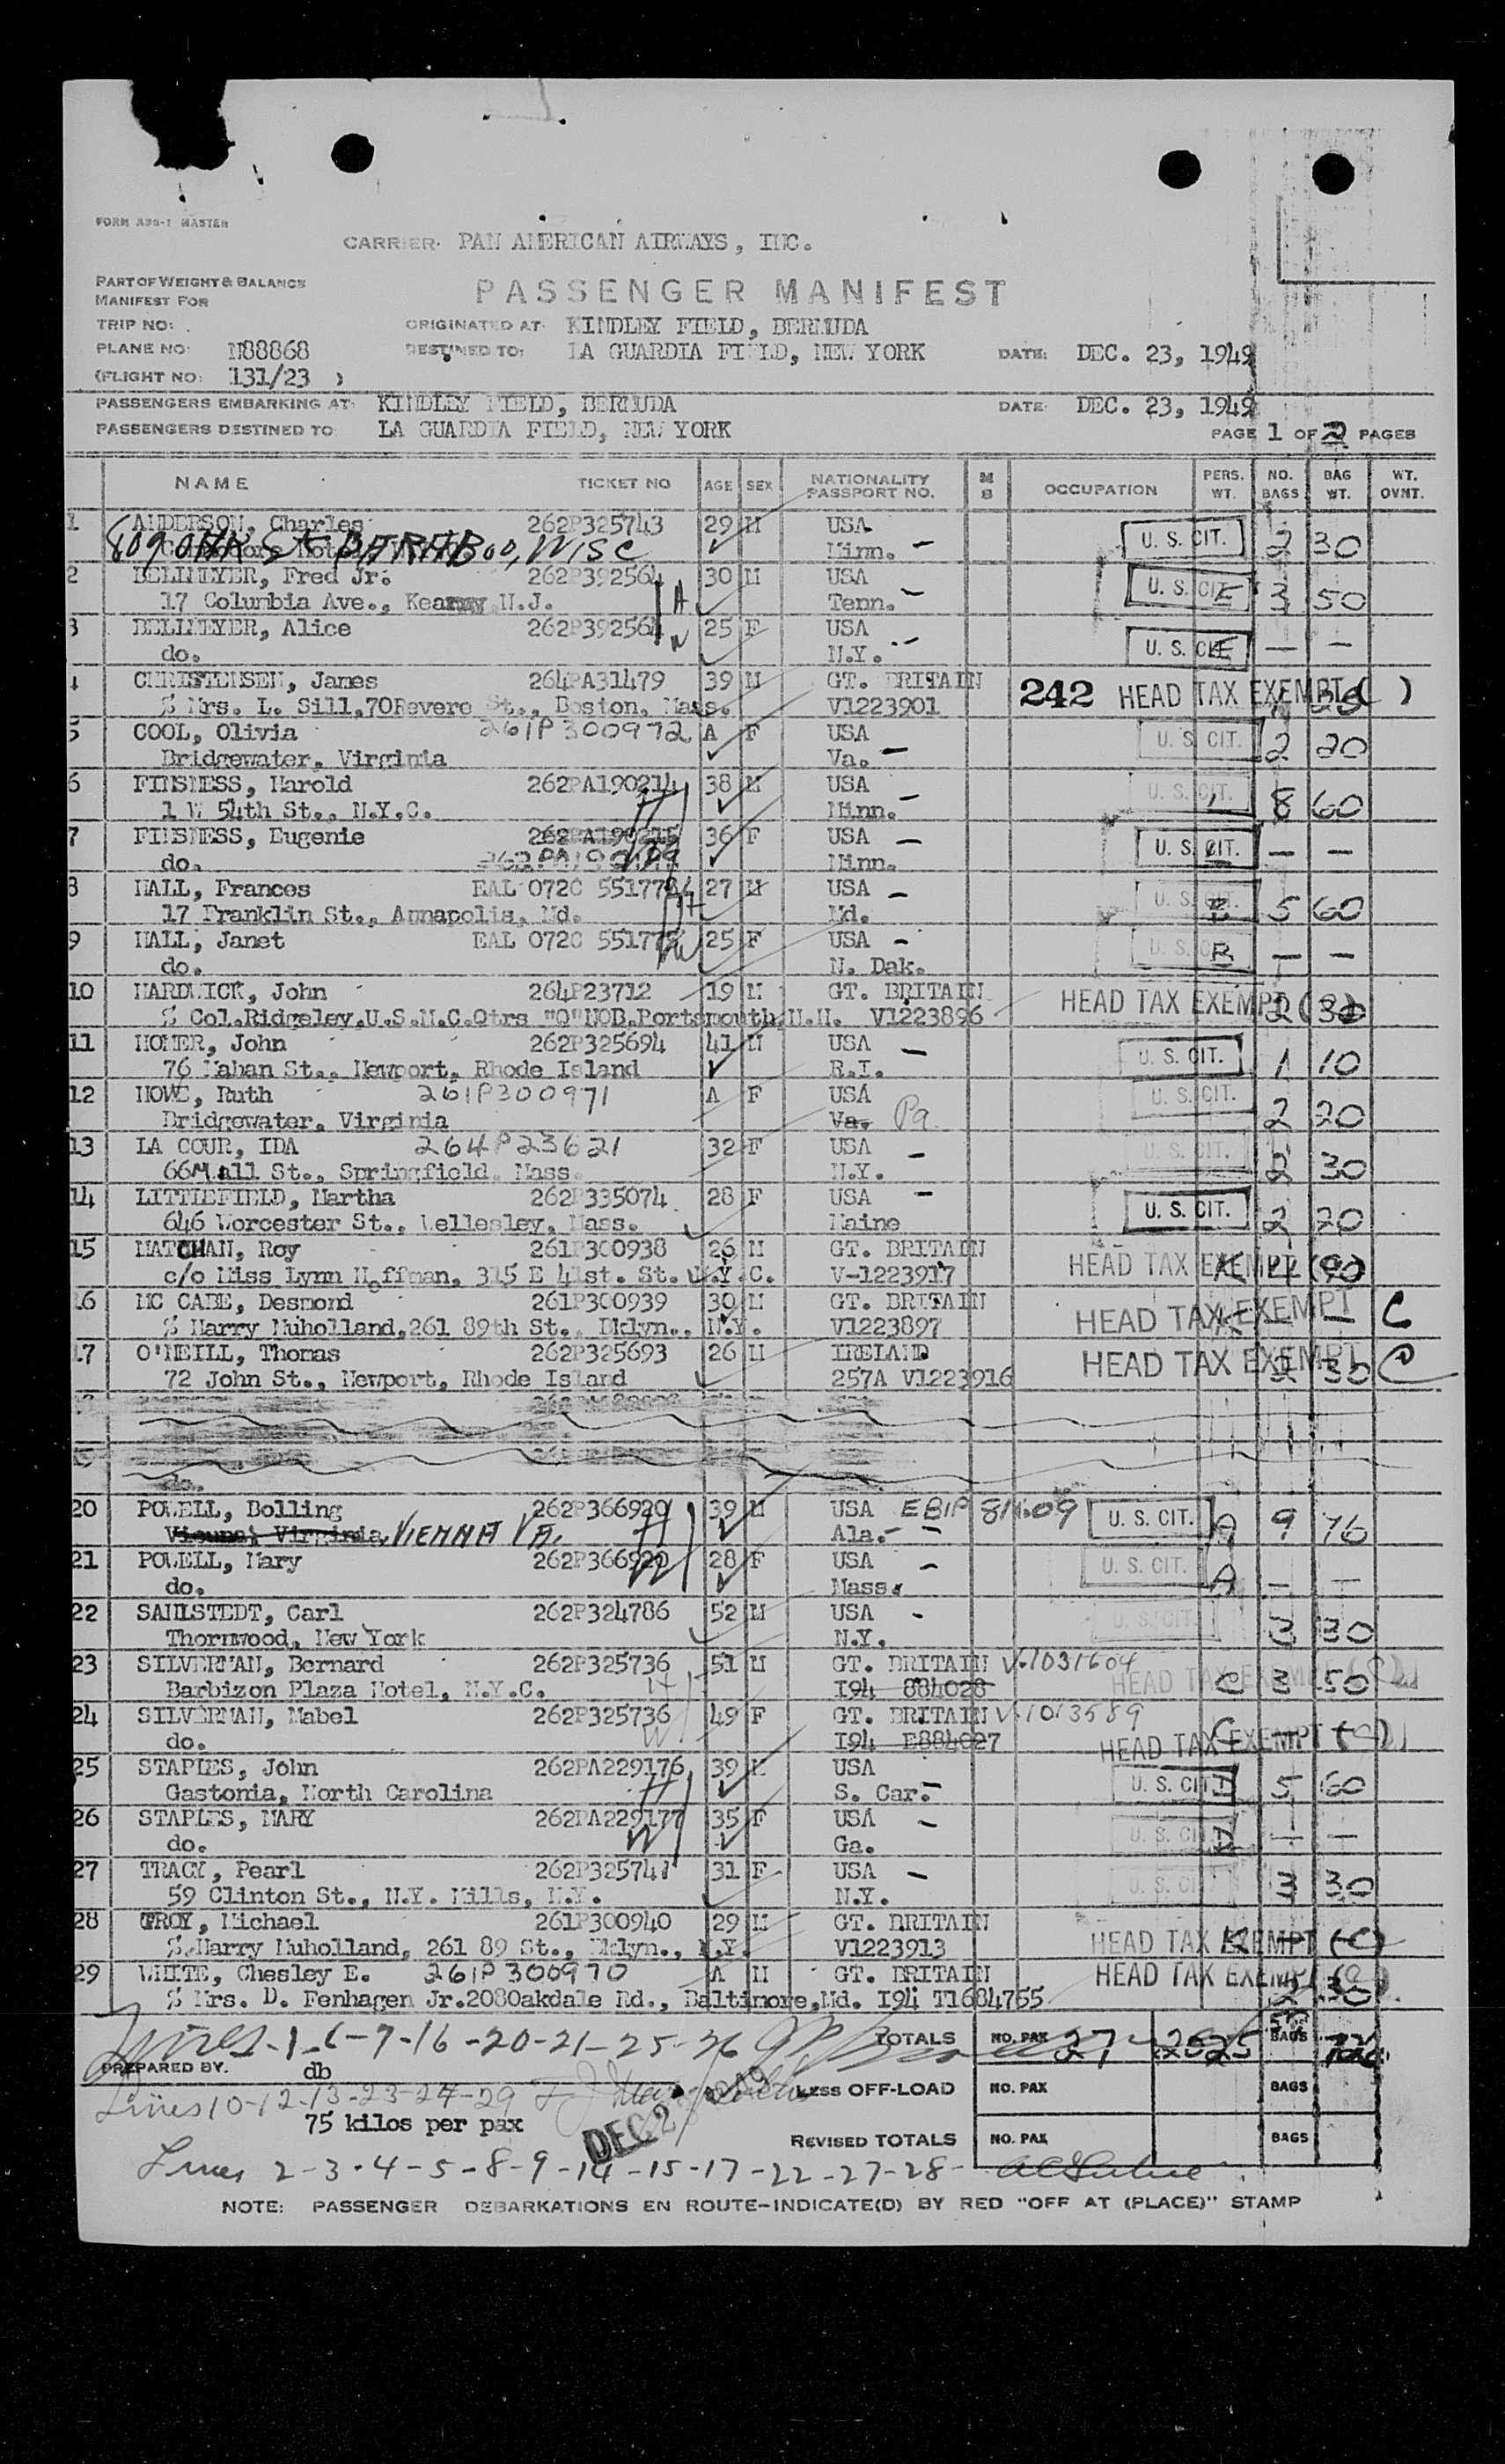 FORM A38-1 MASTER
CARRIER: PAN AMERICAN AIRWAYS, INC.
PART OF WEIGHT & BALANCE
MANIFEST FOR
PASSENGER MANIFEST
TRIP NO:
ORIGINATED AT: KINDLEY FIELD, BERMUDA
PLANE NO: N88868 DESTINED TO: LA GUARDIA FIELD, NEW YORK DATE: DEC. 23, 1949
(FLIGHT NO: 131/23 )
PASSENGERS EMBARKING AT: KINDLEY FIELD, BERMUDA DATE: DEC. 23, 1949
PASSENGERS DESTINED TO: LA GUARDIA FIELD, NEW YORK PAGE 1 OF 2 PAGES
NAME TICKET NO AGE SEX NATIONALITY PASSPORT NO. M S OCCUPATION PERS. WT. NO. BAGS BAG WT. WT. OVNT.
1 ANDERSON, Charles 262P325743 29 M USA U. S. CIT. 2 30
809 OAK St BARABOO, WISC Minn. —
2 BELLMEYER, Fred Jr. 262P392564 30 M USA U. S. CIT. E 3 50
17 Columbia Ave., Kearny N.J. H Tenn. —
3 BELLMEYER, Alice 262P392564 25 F USA U. S. CIT. E — —
do. W N.Y. —
4 CHRISTENSEN, James 264PA31479 39 M GT. BRITAIN 242 HEAD TAX EXEMPT ( )
% Mrs. L. Sill, 70Revere St., Boston, Mass. V1223901
5 COOL, Olivia 261P300972 A F USA U. S. CIT. 2 20
Bridgewater, Virginia Va. —
6 FINSNESS, Harold 262PA190214 38 M USA — U. S. CIT. 8 60
1 W 54th St., N.Y.C. Minn.
7 FINSNESS, Eugenie 36 F USA — U. S. CIT. — —
do. Minn.
8 HALL, Frances EAL 072C 551778 27 M USA — U. S. CIT. B 5 60
17 Franklin St., Annapolis, Md. H Md.
9 HALL, Janet EAL 072C 55177 25 F USA — U. S. CIT. B — —
do. W N. Dak.
10 HARDWICK, John 264P23712 19 M GT. BRITAIN HEAD TAX EXEMPT 2 30
% Col.Ridgeley,U.S.M.C.Qtrs "O"NOB.Portsmouth,N.H. V1223896
11 HOMER, John 262P325694 41 M USA — U. S. CIT. 1 10
76 Mahan St., Newport, Rhode Island R.I.
12 HOWE, Ruth 261P300971 A F USA U. S. CIT. 2 20
Bridgewater, Virginia Va. Pa
13 LA COUR, IDA 264P23621 32 F USA — U. S. CIT. 2 30
66Mall St., Springfield, Mass. N.Y.
14 LITTLEFIELD, Martha 262P335074 28 F USA — U. S. CIT. 2 20
646 Worcester St., Wellesley, Mass. Maine
15 MATCHAN, Roy 261P300938 26 M GT. BRITAIN HEAD TAX EXEMPT
c/o Miss Lynn Hoffman, 315 E 41st. St. N.Y.C. V-1223917
16 MC CABE, Desmond 261P300939 30 M GT. BRITAIN HEAD TAX EXEMPT — C
% Harry Muholland,261 89th St., Bklyn., N.Y. V1223897
17 O'NEILL, Thomas 262P325693 26 M IRELAND HEAD TAX EXEMPT 30
72 John St., Newport, Rhode Island 257A V1223916
do.
20 POWELL, Bolling 262P366920 39 M USA U. S. CIT. A 9 76
Vienna, Virginia, VIENNA VA. H Ala. —
21 POWELL, Mary 262P366920 28 F USA — U. S. CIT. A — —
do. W Mass.
22 SAHLSTEDT, Carl 262P324786 52 M USA - U. S. CIT. 3 30
Thornwood, New York N.Y.
23 SILVERMAN, Bernard 262P325736 51 M GT. BRITAIN V.1031604 HEAD TAX EXEMPT C 3 50
Barbizon Plaza Hotel, N.Y.C. H I94 884028
24 SILVERMAN, Mabel 262P325736 49 F GT. BRITAIN V.1013589 HEAD TAX EXEMPT C —
do. W I94 E884027
25 STAPLES, John 262PA229176 39 M USA U. S. CIT. D 5 60
Gastonia, North Carolina H S. Car. —
26 STAPLES, MARY 262PA229177 35 F USA — U. S. CIT. D — —
do. W Ga.
27 TRACY, Pearl 262P325741 31 F USA — U. S. CIT. 3 30
59 Clinton St., N.Y. Mills, N.Y. N.Y.
28 TROY, Michael 261P300940 29 M GT. BRITAIN HEAD TAX EXEMPT
% Harry Muholland, 261 89 St., Bklyn., N.Y. V1223913
29 WHITE, Chesley E. 261P300970 A M GT. BRITAIN HEAD TAX EXEMPT 2 30
% Mrs. D. Fenhagen Jr.208Oakdale Rd., Baltimore,Md. I94 T1684755
Lines-1-6-7-16-20-21-25-26 TOTALS NO. PAX 27 2525 BAGS
PREPARED BY. db
Lines 10-12-13-23-24-29 LESS OFF-LOAD NO. PAX BAGS
75 kilos per pax
DEC 2 REVISED TOTALS NO. PAX BAGS
Lines 2-3-4-5-8-9-14-15-17-22-27-28
NOTE: PASSENGER DEBARKATIONS EN ROUTE-INDICATE(D) BY RED "OFF AT (PLACE)" STAMP